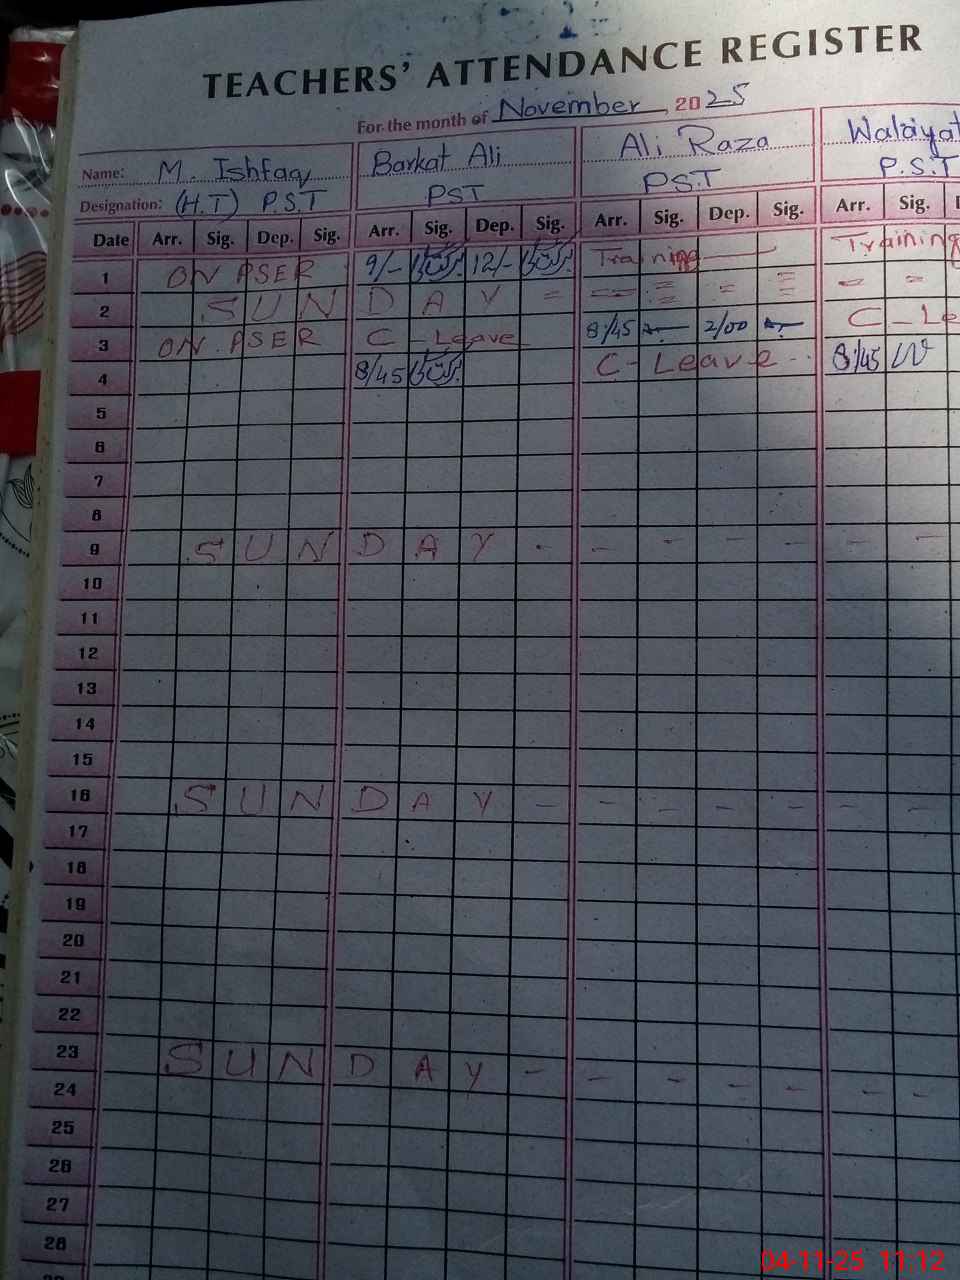 TEACHERS' ATTENDANCE REGISTER
For the month of November 2025
Name: M. Ishfaq Barkat Ali Ali Raza Walaiyat
Designation: (H.T) P.S.T PST P.S.T P.S.T
Date Arr. Sig. Dep. Sig. Arr. Sig. Dep. Sig. Arr. Sig. Dep. Sig. Arr. Sig.
1 ON PSER 9/- 12/- Training Training
2 S U N D A Y
3 ON PSER C - Leave 8/45 2/00 C - Le
4 8/45 C - Leave 8/45
5
6
7
8
9 S U N D A Y
10
11
12
13
14
15
16 S U N D A Y
17
18
19
20
21
22
23 S U N D A Y
24
25
26
27
28
04-11-25 11:12